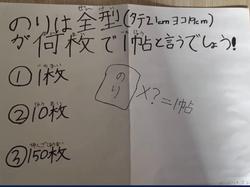 のりは全型(タテ21cmヨコ19cm)
が何枚で1帖と言うでしょう!
①1枚
②10枚
③150枚
のり
×?=1帖